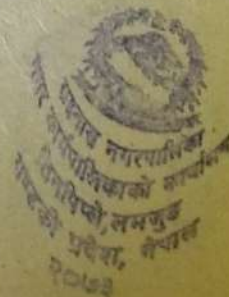 राईनास नगरपालिका
नगर कार्यपालिकाको कार्यालय
तिनपिप्ले, लमजुङ
गण्डकी प्रदेश, नेपाल
२०७३